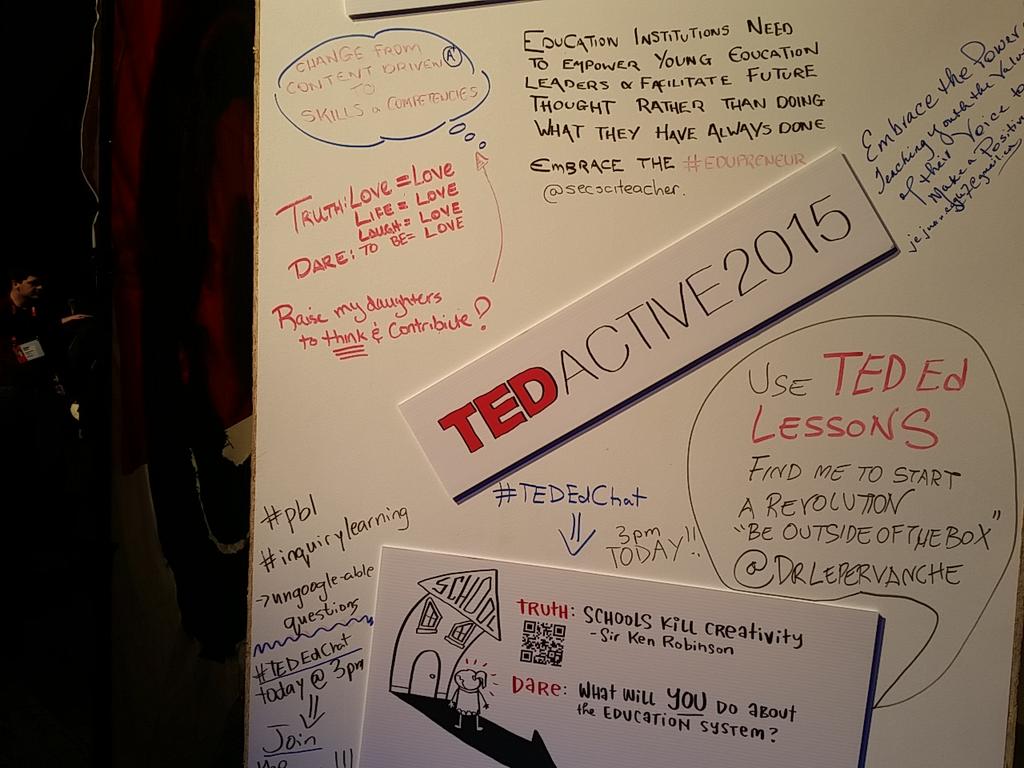 CHANGE FROM
CONTENT DRIVEN
TO
SKILLS & COMPETENCIES
EDUCATION INSTITUTIONS NEED
TO EMPOWER YOUNG EDUCATION
LEADERS & FACILITATE FUTURE
THOUGHT RATHER THAN DOING
WHAT THEY HAVE ALWAYS DONE
EMBRACE THE #EDUPRENEUR
@secsciteacher.
Embrace the Power
Teaching youth the Value
of their Voice to
Make a Positive
TRUTH: LOVE = LOVE
LIFE = LOVE
LAUGH = LOVE
DARE: TO BE = LOVE
Raise my daughters
to think & Contribute!
TEDACTIVE2015
USE TED Ed
LESSONS
FIND ME TO START
A REVOLUTION
"BE OUTSIDE OF THE BOX"
@DRLEPERVANCHE
#TEDEdChat
3pm
TODAY!!
#pbl
#inquirylearning
→ungoogle-able
questions
#TEDEdChat
today @ 3pm
Join
!!!
SCHOOL
TRUTH: SCHOOLS KILL CREATIVITY
-Sir Ken Robinson
DARE: WHAT WILL YOU DO ABOUT
the EDUCATION SYSTEM?